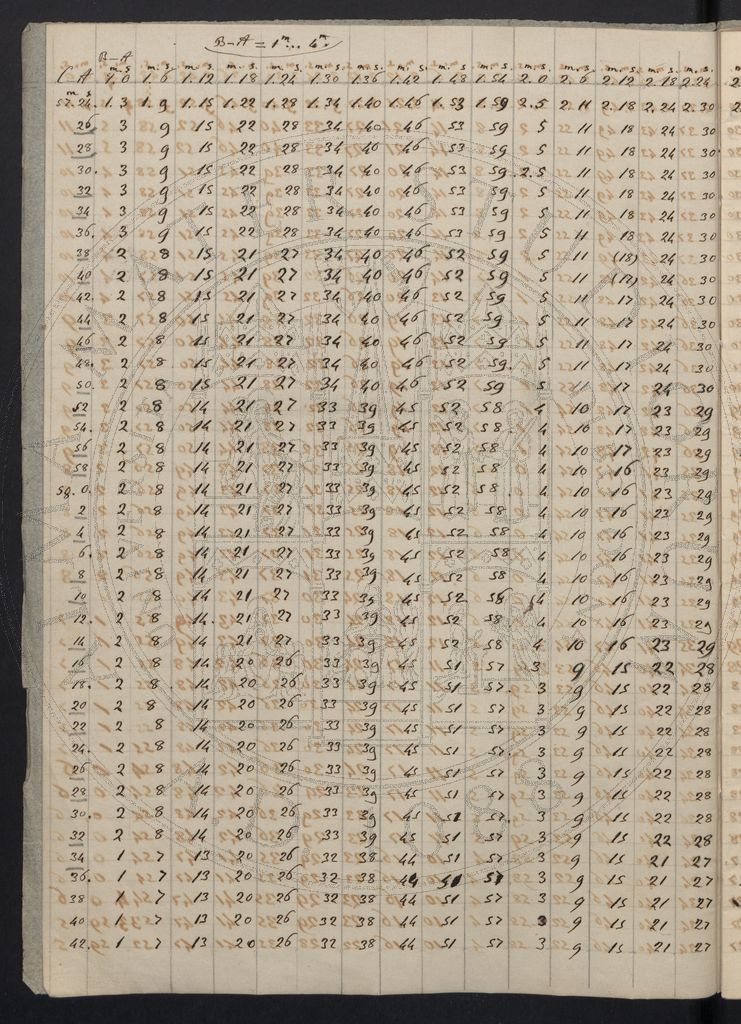 B-A = 1m... 4m.
B-A
m. s. m. s. m. s. m. s. m. s. m. s. m. s. m. s. m. s. m. s. m. s. m. s. m. s. m. s. m. s.
C-A 1.0 1.6 1.12 1.18 1.24 1.30 1.36 1.42 1.48 1.54 2.0 2.6 2.12 2.18 2.24
m. s.
57.24. 1.3 1.9 1.15 1.22 1.28 1.34 1.40 1.46 1.53 1.59 2.5 2.11 2.18 2.24 2.30
26 3 9 15 22 28 34 40 46 53 59 5 11 18 24 30
28 3 9 15 22 28 34 40 46 53 59 5 11 18 24 30
30. 3 9 15 22 28 34 40 46 53 59 2.5 11 18 24 30
32 3 9 15 22 28 34 40 46 53 59 5 11 18 24 30
34 3 9 15 22 28 34 40 46 53 59 5 11 18 24 30
36. 3 9 15 22 28 34 40 46 53 59 5 11 18 24 30
38 2 8 15 21 27 34 40 46 52 59 5 11 (18) 24 30
40 2 8 15 21 27 34 40 46 52 59 5 11 (17) 24 30
42. 2 8 15 21 27 34 40 46 52 59 5 11 17 24 30
44 2 8 15 21 27 34 40 46 52 59 5 11 17 24 30
46 2 8 15 21 27 34 40 46 52 59 5 11 17 24 30
48. 2 8 15 21 27 34 40 46 52 59. 5 11 17 24 30
50. 2 8 15 21 27 34 40 46 52 59 5 11 17 24 30
52 2 8 14 21 27 33 39 45 52 58 4 10 17 23 29
54. 2 8 14 21 27 33 39 45 52 58. 4 10 17 23 29
56 2 8 14 21 27 33 39 45 52 58 4 10 17 23 29
58 2 8 14 21 27 33 39 45 52 58 4 10 16 23 29
58. 0. 2 8 14 21 27 33 39 45 52 58 4 10 16 23 29
2 2 8 14 21 27 33 39 45 52 58 4 10 16 23 29
4 2 8 14 21 27 33 39 45 52 58 4 10 16 23 29
6. 2 8 14 21 27 33 39 45 52 58 4 10 16 23 29
8 2 8 14 21 27 33 39 45 52 58 4 10 16 23 29
10 2 8 14 21 27 33 39 45 52 58 4 10 16 23 29
12. 2 8 14. 21 27 33 39 45 52 58. 4 10 16 23 29
14 2 8 14 21 27 33 39 45 52 58 4 10 16 23 29
16 2 8 14 20 26 33 39 45 51 57 3 9 15 22 28
18. 2 8 14 20 26 33 39 45 51 57. 3 9 15 22 28
20 2 8 14 20 26 33 39 45 51 57 3 9 15 22 28
22 2 8 14 20 26 33 39 45 51 57 3 9 15 22 28
24. 2 8 14 20 26 33 39 45 51 57. 3 9 15 22 28
26 2 8 14 20 26 33 39 45 51 57 3 9 15 22 28
28 2 8 14 20 26 33 39 45 51 57 3 9 15 22 28
30. 2 8 14 20 26 33 39 45 51 57 3 9 15 22 28
32 2 8 14 20 26 33 39 45 51 57 3 9 15 22 28
34 1 7 13 20 26 32 38 44 51 57 3 9 15 21 27
36. 1 7 13 20 26 32 38 44 51 57 3 9 15 21 27
38 1 7 13 20 26 32 38 44 51 57 3 9 15 21 27
40 1 7 13 20 26 32 38 44 51 57 3 9 15 21 27
42. 1 7 13 20 26 32 38 44 51 57 3 9 15 21 27